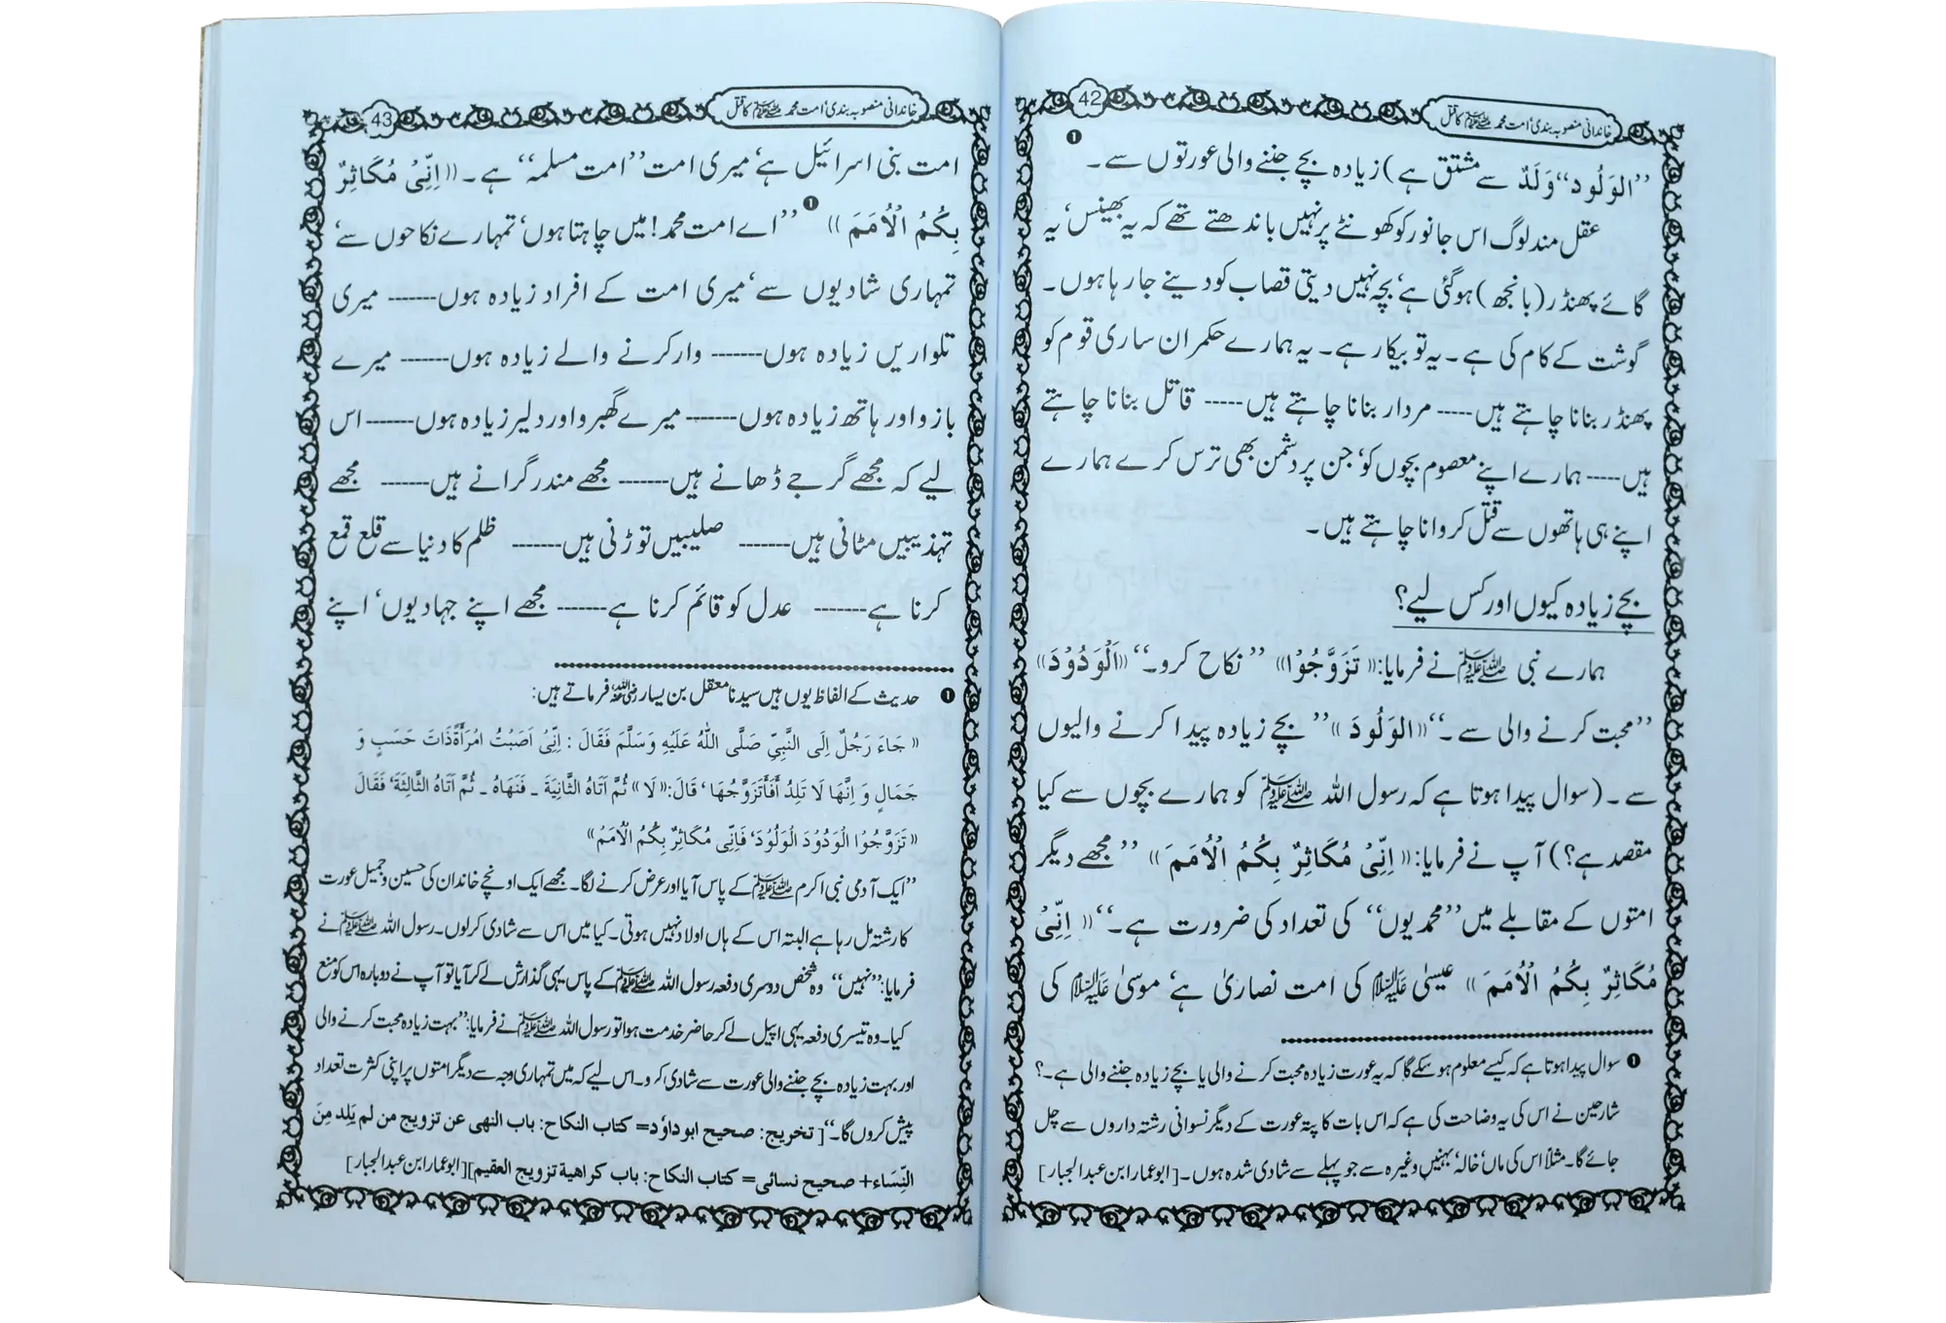 خاندانی منصوبہ بندی' امت محمد ﷺ کا قتل
42
’’الوَلُود‘‘ وَلَدٌ سے مشتق ہے) زیادہ بچے جننے والی عورتوں سے۔ ❶
عقل مند لوگ اس جانور کو کھونٹے پر نہیں باندھتے تھے کہ یہ بھینس' یہ
گائے پھنڈر (بانجھ) ہو گئی ہے' بچہ نہیں دیتی قصاب کو دینے جا رہا ہوں۔
گوشت کے کام کی ہے۔ یہ تو بیکار ہے۔ یہ ہمارے حکمران ساری قوم کو
پھنڈر بنانا چاہتے ہیں---- مردار بنانا چاہتے ہیں----- قاتل بنانا چاہتے
ہیں---- ہمارے اپنے معصوم بچوں کو' جن پر دشمن بھی ترس کرے ہمارے
اپنے ہی ہاتھوں سے قتل کروانا چاہتے ہیں۔
بچے زیادہ کیوں اور کس لیے؟
ہمارے نبی ﷺ نے فرمایا: «تَزَوَّجُوْا» ’’نکاح کرو۔‘‘ «اَلْوَدُوْدَ»
’’محبت کرنے والی سے۔‘‘ «الوَلُودَ» ’’بچے زیادہ پیدا کرنے والیوں
سے۔ (سوال پیدا ہوتا ہے کہ رسول اللہ ﷺ کو ہمارے بچوں سے کیا
مقصد ہے؟) آپ نے فرمایا: «اِنِّیْ مُکَاثِرٌ بِکُمُ الْاُمَمَ» ’’مجھے دیگر
امتوں کے مقابلے میں ’’محمدیوں‘‘ کی تعداد کی ضرورت ہے۔‘‘ «اِنِّیْ
مُکَاثِرٌ بِکُمُ الْاُمَمَ» عیسیٰ علیہ السلام کی امت نصاریٰ ہے' موسیٰ علیہ السلام کی
❶ سوال پیدا ہوتا ہے کہ کیسے معلوم ہو سکے گا کہ یہ عورت زیادہ محبت کرنے والی یا بچے زیادہ جننے والی ہے۔؟
شارحین نے اس کی یہ وضاحت کی ہے کہ اس بات کا پتہ عورت کے دیگر نسوانی رشتہ داروں سے چل
جائے گا۔ مثلاً اس کی ماں' خالہ' بہنیں وغیرہ سے جو پہلے سے شادی شدہ ہوں۔ [ابو عمار ابن عبدالجبار]
خاندانی منصوبہ بندی' امت محمد ﷺ کا قتل
43
امت بنی اسرائیل ہے' میری امت ’’امت مسلمہ‘‘ ہے۔ «اِنِّیْ مُکَاثِرٌ
بِکُمُ الْاُمَمَ» ❶ ’’اے امت محمد! میں چاہتا ہوں' تمہارے نکاحوں سے'
تمہاری شادیوں سے' میری امت کے افراد زیادہ ہوں------ میری
تلواریں زیادہ ہوں------ وار کرنے والے زیادہ ہوں------ میرے
بازو اور ہاتھ زیادہ ہوں------ میرے گھبرو اور دلیر زیادہ ہوں------ اس
لیے کہ مجھے گرجے ڈھانے ہیں------ مجھے مندر گرانے ہیں------ مجھے
تہذیبیں مٹانی ہیں------ صلیبیں توڑنی ہیں------ ظلم کا دنیا سے قلع قمع
کرنا ہے------ عدل کو قائم کرنا ہے------ مجھے اپنے جہادیوں' اپنے
❶ حدیث کے الفاظ یوں ہیں سیدنا معقل بن یسار رضی اللہ عنہ فرماتے ہیں:
«جَاءَ رَجُلٌ اِلَی النَّبِیِّ صَلَّی اللہُ عَلَیْہِ وَسَلَّمَ فَقَالَ : اِنِّیْ اَصَبْتُ امْرَأَۃً ذَاتَ حَسَبٍ وَ
جَمَالٍ وَ اِنَّھَا لَا تَلِدُ أَفَأَتَزَوَّجُھَا' قَالَ: «لَا» ثُمَّ اَتَاہُ الثَّانِیَۃَ ۔ فَنَھَاہُ ۔ ثُمَّ اَتَاہُ الثَّالِثَۃَ' فَقَالَ
«تَزَوَّجُوْا الْوَدُوْدَ الْوَلُوْدَ' فَاِنِّی مُکَاثِرٌ بِکُمُ الْاُمَمَ»
’’ایک آدمی نبی اکرم ﷺ کے پاس آیا اور عرض کرنے لگا۔ مجھے ایک اونچے خاندان کی حسین و جمیل عورت
کا رشتہ مل رہا ہے البتہ اس کے ہاں اولاد نہیں ہوتی۔ کیا میں اس سے شادی کر لوں۔ رسول اللہ ﷺ نے
فرمایا: ’’نہیں‘‘ وہ شخص دوسری دفعہ رسول اللہ ﷺ کے پاس یہی گذارش لے کر آیا تو آپ نے دوبارہ اس کو منع
کیا۔ وہ تیسری دفعہ یہی اپیل لے کر حاضر خدمت ہوا تو رسول اللہ ﷺ نے فرمایا: ’’بہت زیادہ محبت کرنے والی
اور بہت زیادہ بچے جننے والی عورت سے شادی کرو۔ اس لیے کہ میں تمہاری وجہ سے دیگر امتوں پر اپنی کثرت تعداد
پیش کروں گا۔‘‘ [تخریج: صحیح ابوداؤد= کتاب النکاح: باب النھی عن تزویج من لم یَلِد مِنَ
النِّسَاء+ صحیح نسائی= کتاب النکاح: باب کراھیۃ تزویج العقیم] [ابو عمار ابن عبدالجبار]